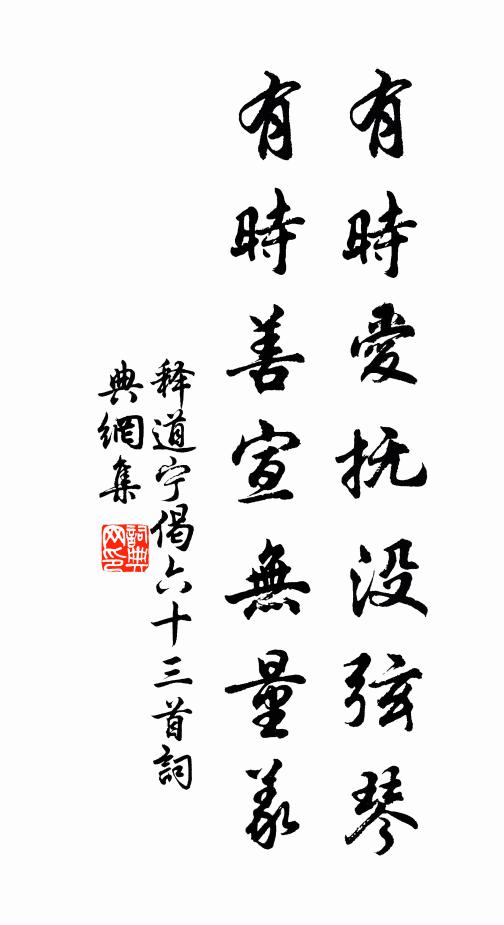 有時愛抚没弦琴
有時善宣無量義
释道宁偈六十三首詞
典網集
詞典网印